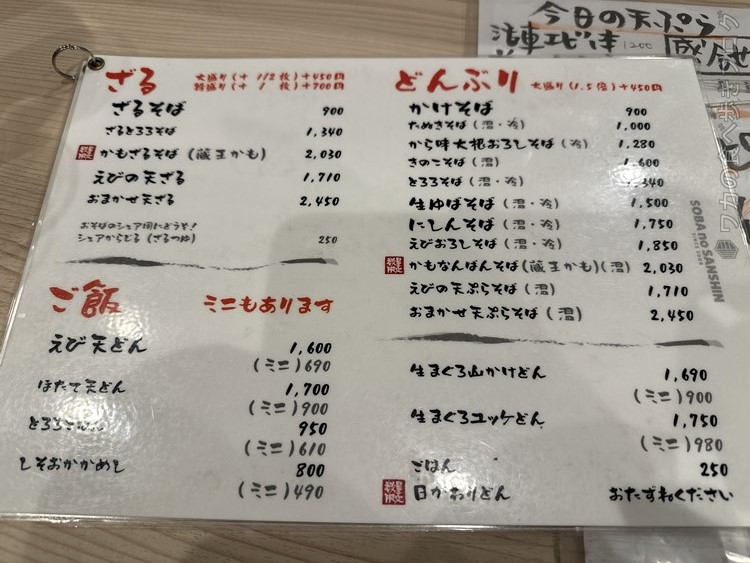 今日の天ぷら
活車エビ 1200
ざる 大盛り(+ 1/2 枚)+450円
特盛り(+ 1 枚)+700円
ざるそば 900
ざるとろろそば 1,340
数量限定 かもざるそば (蔵王かも) 2,030
えびの天ざる 1,710
おまかせ天ざる 2,450
おそばのシェア用にどうぞ!
シェアからとる (ざるつゆ) 250
ご飯 ミニもあります
えび天どん 1,600
(ミニ)690
ほたて天どん 1,700
(ミニ)900
950
(ミニ)610
しそおかかめし 800
(ミニ)490
どんぶり 大盛り(1.5倍)+450円
かけそば 900
たぬきそば (温・冷) 1,000
から味大根おろしそば (冷) 1,280
きのこそば (温) 1,600
とろろそば (温・冷) 1,340
生ゆばそば (温・冷) 1,500
にしんそば (温・冷) 1,750
えびおろしそば (温・冷) 1,850
数量限定 かもなんばんそば(蔵王かも)(温) 2,030
えびの天ぷらそば (温) 1,710
おまかせ天ぷらそば (温) 2,450
生まぐろ山かけどん 1,690
(ミニ)900
生まぐろユッケどん 1,750
(ミニ)980
ごはん 250
数量限定 日かわりどん おたずねください
SOBA no SANSHIN
ワカの食べ歩きブログ